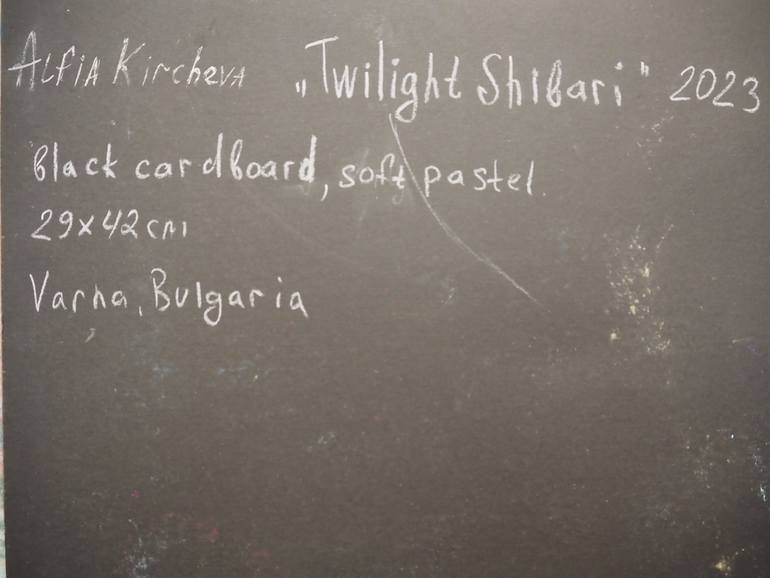 Alfia Kircheva „Twilight Shibari" 2023
black cardboard, soft pastel.
29x42cm
Varna, Bulgaria